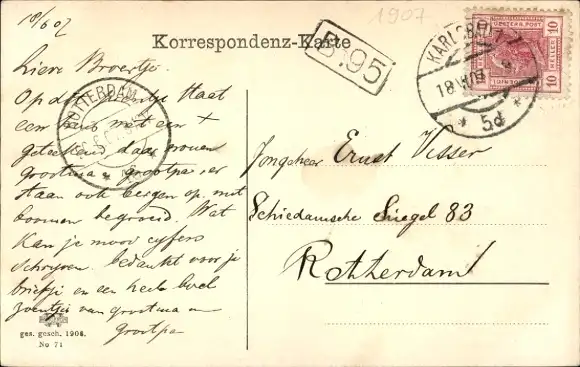 18/6 07
1907
Korrespondenz-Karte
B.95
KARLSBAD
18 VI 07
* 5d *
OESTERR. POST
10 10
HELLER
ROTTERDAM
Lieve Broertje.
Op dit prentje staat
een huis met een +
geteekend daar wonen
grootma grootpa, er
staan ook bergen op, met
boomen begroeid. Wat
kan je mooi cyfers
schryven. bedankt voor je
briefje en een heele boel
zoentjes van grootma en
grootpa
Jongeheer Ernst Visser
Schiedamsche Singel 83
Rotterdam
ges. gesch. 1906.
No 71